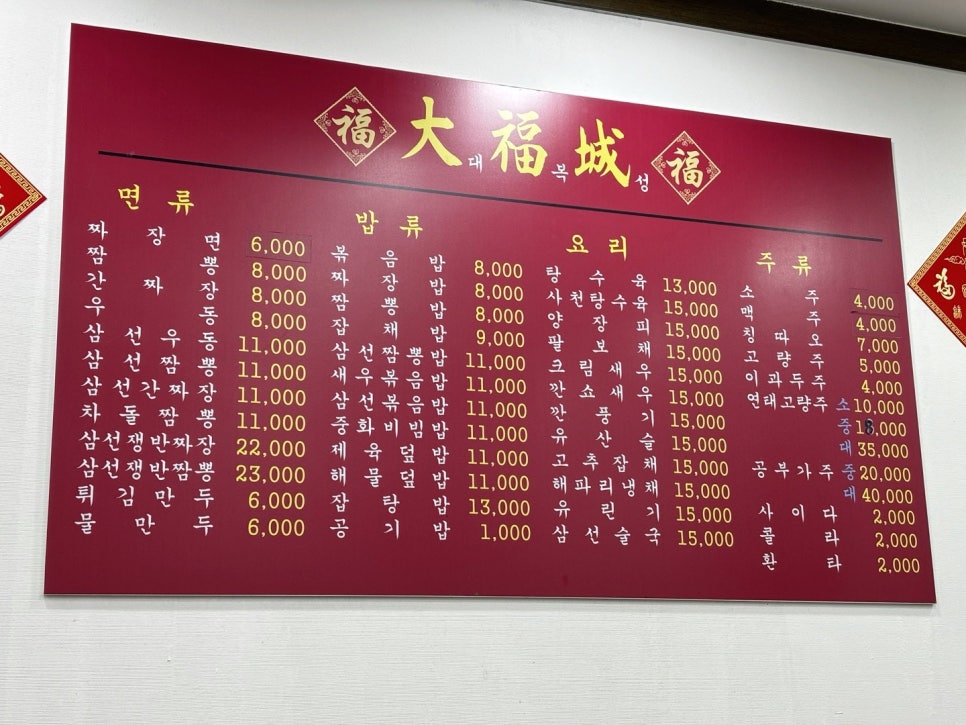 福 大福城 福
대 복 성
면류
짜장면 6,000
짬뽕 8,000
간짜장 8,000
우동 8,000
삼선우동 11,000
삼선짬뽕 11,000
삼선간짜장 11,000
차돌짬뽕 11,000
삼선쟁반짜장 22,000
삼선쟁반짬뽕 23,000
튀김만두 6,000
물만두 6,000
밥류
볶음밥 8,000
짜장밥 8,000
짬뽕밥 8,000
잡채밥 9,000
삼선짬뽕밥 11,000
새우볶음밥 11,000
삼선볶음밥 11,000
중화비빔밥 11,000
제육덮밥 11,000
해물덮밥 11,000
잡탕밥 13,000
공기밥 1,000
요리
탕수육 13,000
사천탕수육 15,000
양장피 15,000
팔보채 15,000
크림새우 15,000
깐쇼새우 15,000
깐풍기 15,000
유산슬 15,000
고추잡채 15,000
해파리냉채 15,000
유린기 15,000
삼선술국 15,000
주류
소주 4,000
맥주 4,000
칭따오 7,000
고량주 5,000
이과두주 4,000
연태고량주 소 10,000
중 18,000
대 35,000
공부가주 중 20,000
대 40,000
사이다 2,000
콜라 2,000
환타 2,000